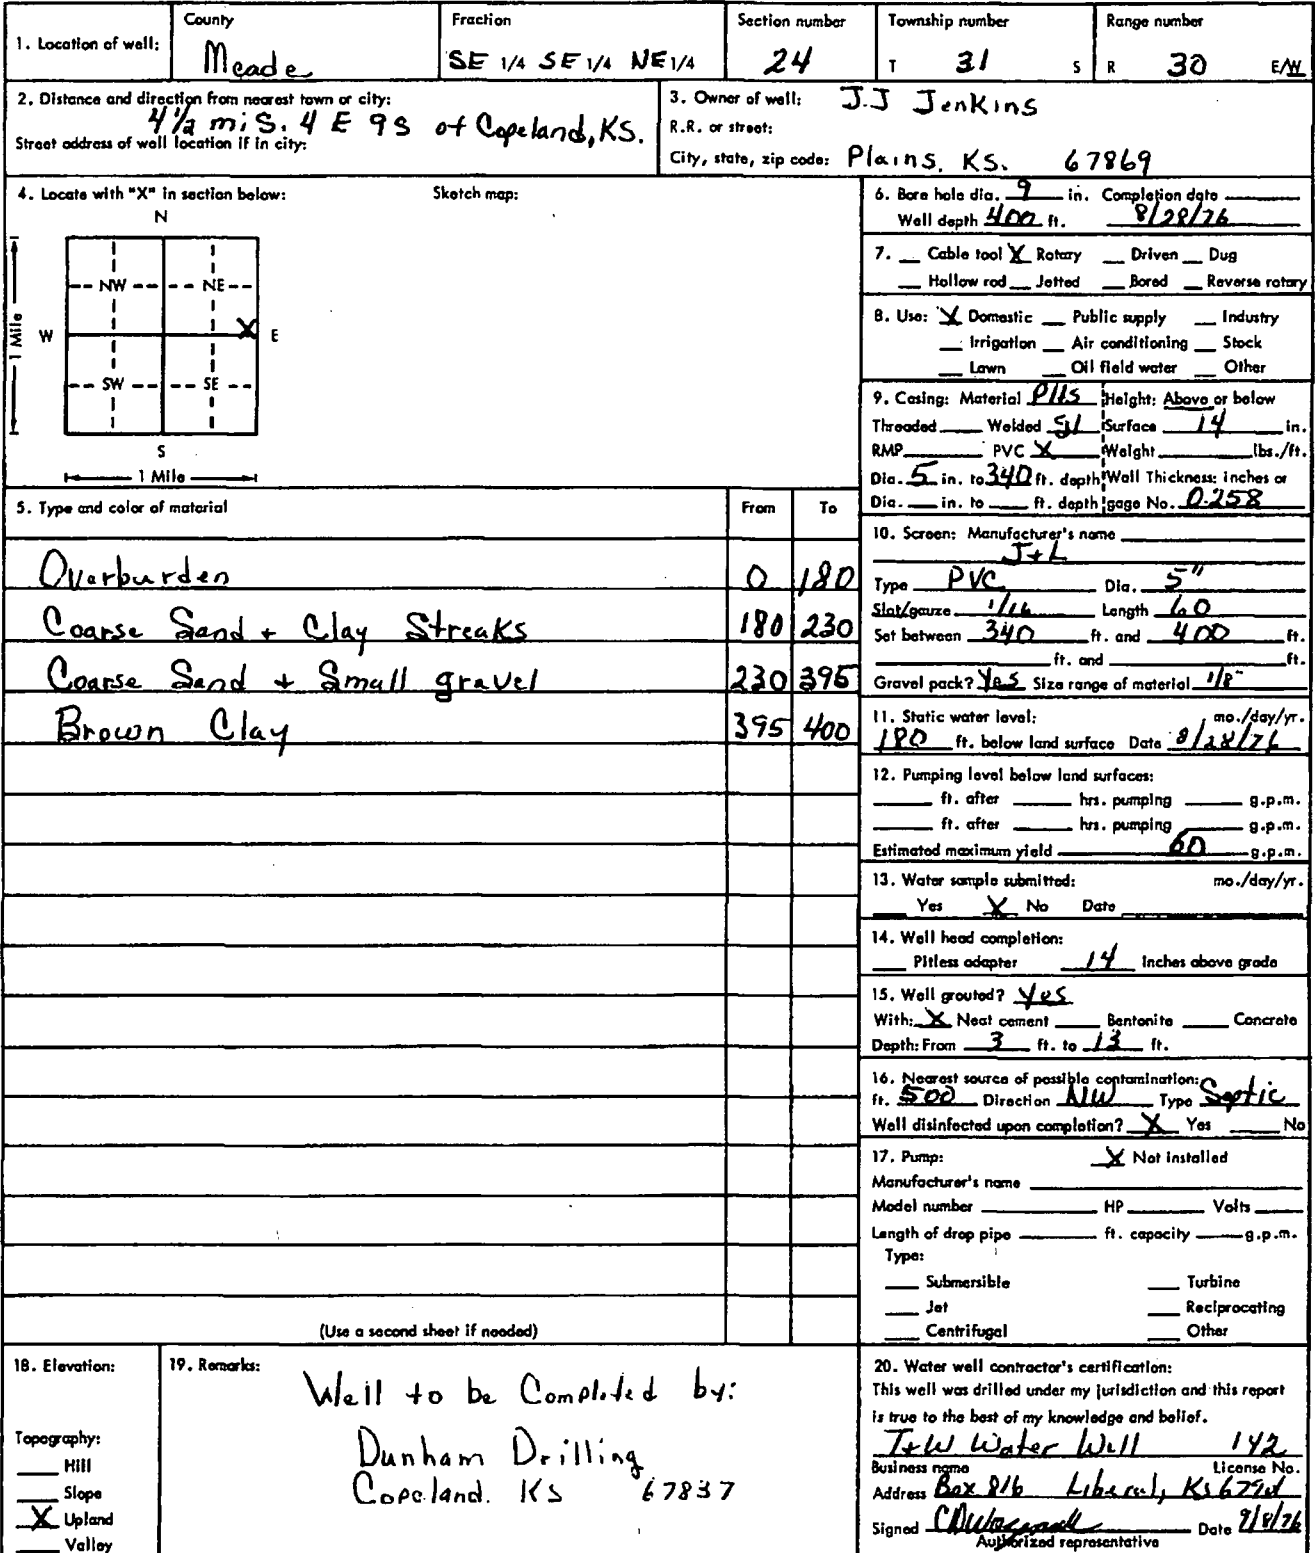 1. Location of well:
County
Meade
Fraction
SE 1/4 SE 1/4 NE 1/4
Section number
24
Township number
T 31 S
Range number
R 30 E/W
2. Distance and direction from nearest town or city:
4½ mi S. 4 E 9 S of Copeland, KS.
Street address of well location if in city:
3. Owner of well: J.J Jenkins
R.R. or street:
City, state, zip code: Plains, KS. 67869
4. Locate with "X" in section below:
Sketch map:
N
NW NE
W X E
SW SE
S
1 Mile
1 Mile
6. Bore hole dia. 9 in. Completion date
Well depth 400 ft. 8/28/76
7. Cable tool X Rotary Driven Dug
Hollow rod Jetted Bored Reverse rotary
8. Use: X Domestic Public supply Industry
Irrigation Air conditioning Stock
Lawn Oil field water Other
9. Casing: Material Height: Above or below
Threaded Welded Surface 14 in.
RMP PVC X Weight lbs./ft.
Dia. 5 in. to 340 ft. depth Wall Thickness: inches or
Dia. in. to ft. depth gage No. 0.258
5. Type and color of material From To
Overburden 0 180
Coarse Sand + Clay Streaks 180 230
Coarse Sand + Small gravel 230 395
Brown Clay 395 400
(Use a second sheet if needed)
10. Screen: Manufacturer's name
J+L
Type PVC Dia. 5"
Slot/gauze 1/16 Length 60
Set between 340 ft. and 400 ft.
ft. and ft.
Gravel pack? Yes Size range of material 1/8"
11. Static water level: mo./day/yr.
180 ft. below land surface Date 8/28/76
12. Pumping level below land surfaces:
ft. after hrs. pumping g.p.m.
ft. after hrs. pumping g.p.m.
Estimated maximum yield 60 g.p.m.
13. Water sample submitted: mo./day/yr.
Yes X No Date
14. Well head completion:
Pitless adapter 14 Inches above grade
15. Well grouted? Yes
With: X Neat cement Bentonite Concrete
Depth: From 3 ft. to 13 ft.
16. Nearest source of possible contamination:
ft. 500 Direction NW Type Septic
Well disinfected upon completion? X Yes No
17. Pump: X Not installed
Manufacturer's name
Model number HP Volts
Length of drop pipe ft. capacity g.p.m.
Type:
Submersible Turbine
Jet Reciprocating
Centrifugal Other
18. Elevation:
Topography:
Hill
Slope
X Upland
Valley
19. Remarks:
Well to be Completed by:
Dunham Drilling
Copeland. KS 67837
20. Water well contractor's certification:
This well was drilled under my jurisdiction and this report
is true to the best of my knowledge and belief.
T+W Water Well 142
Business name License No.
Address Box 816 Liberal, Ks 67901
Signed Date 9/8/76
Authorized representative